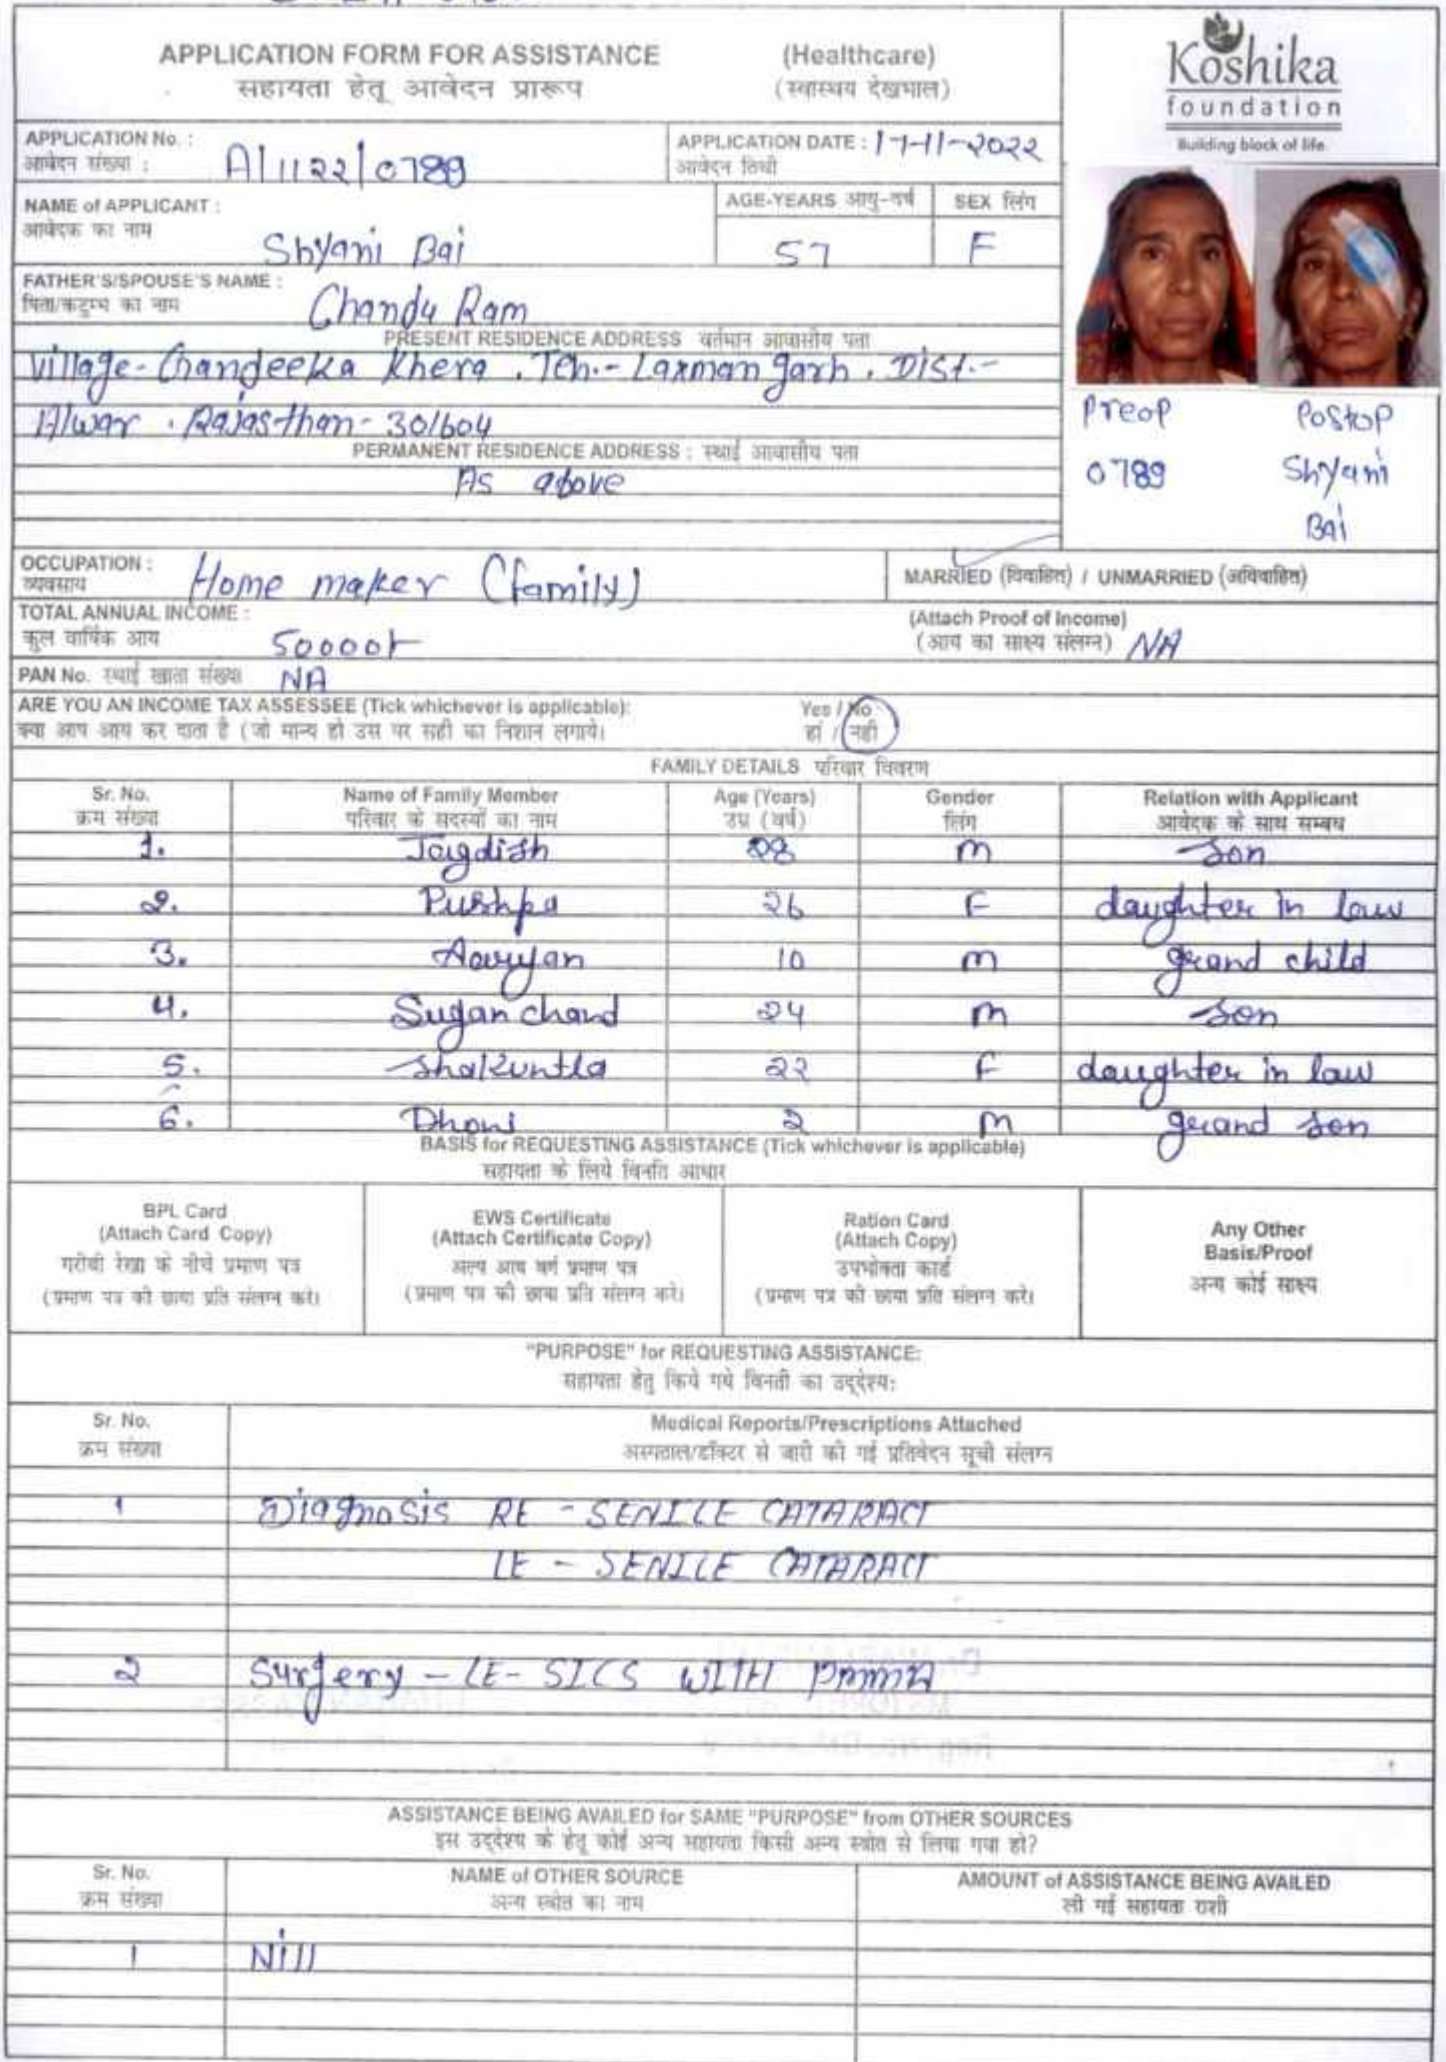 APPLICATION FORM FOR ASSISTANCE (Healthcare)
सहायता हेतू आवेदन प्रारूप (स्वास्थय देखभाल)
Koshika
foundation
Building block of life
APPLICATION No. :
आवेदन संख्या : A/1122/0789
APPLICATION DATE : 17-11-2022
आवेदन तिथी
NAME of APPLICANT :
आवेदक का नाम
Shyani Bai
AGE-YEARS आयु-वर्ष
57
SEX लिंग
F
FATHER'S/SPOUSE'S NAME :
पिता/कटुम्ब का नाम
Chandu Ram
PRESENT RESIDENCE ADDRESS वर्तमान आवासीय पता
Village- Chandeeka Khera . Teh.- Laxman garh . Dist.-
Alwar . Rajasthan- 301604
PERMANENT RESIDENCE ADDRESS : स्थाई आवासीय पता
As above
Preop Postop
0789 Shyani
Bai
OCCUPATION :
व्यवसाय
Home maker (family)
MARRIED (विवाहित) / UNMARRIED (अविवाहित)
TOTAL ANNUAL INCOME :
कुल वार्षिक आय
(Attach Proof of Income)
(आय का साक्ष्य संलग्न) NA
PAN No. स्थाई खाता संख्या NA
ARE YOU AN INCOME TAX ASSESSEE (Tick whichever is applicable): Yes / No
क्या आप आय कर दाता है (जो मान्य हो उस पर सही का निशान लगाये। हां / नही
FAMILY DETAILS परिवार विवरण
Sr. No. Name of Family Member Age (Years) Gender Relation with Applicant
क्रम संख्या परिवार के सदस्यों का नाम उम्र (वर्ष) लिंग आवेदक के साथ सम्बध
1. Jagdish 28 m son
2. Pushpa 26 F daughter in law
3. Aaryan 10 m grand child
4. Sugan chand 24 m son
5. Shakuntla 22 F daughter in law
6. Dhoni 2 m grand son
BASIS for REQUESTING ASSISTANCE (Tick whichever is applicable)
सहायता के लिये विनति आधार
BPL Card
(Attach Card Copy)
गरीबी रेखा के नीचे प्रमाण पत्र
(प्रमाण पत्र की छाया प्रति संलग्न करे।
EWS Certificate
(Attach Certificate Copy)
अल्प आय वर्ग प्रमाण पत्र
(प्रमाण पत्र की छाया प्रति संलग्न करे।
Ration Card
(Attach Copy)
उपभोक्ता कार्ड
(प्रमाण पत्र की छाया प्रति संलग्न करे।
Any Other
Basis/Proof
अन्य कोई साक्ष्य
"PURPOSE" for REQUESTING ASSISTANCE:
सहायता हेतु किये गये विनती का उद्देश्य:
Sr. No. Medical Reports/Prescriptions Attached
क्रम संख्या अस्पताल/डॉक्टर से जारी की गई प्रतिवेदन सूची संलग्न
1 Diagnosis RE - SENILE CATARACT
LE - SENILE CATARACT
2 Surgery - LE- SICS WITH PMMA
ASSISTANCE BEING AVAILED for SAME "PURPOSE" from OTHER SOURCES
इस उद्देश्य के हेतू कोई अन्य सहायता किसी अन्य स्त्रोत से लिया गया हो?
Sr. No. NAME of OTHER SOURCE AMOUNT of ASSISTANCE BEING AVAILED
क्रम संख्या अन्य स्त्रोत का नाम ली गई सहायता राशी
1 Nill